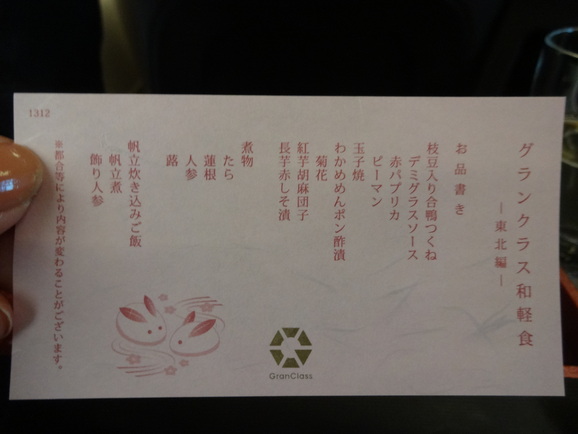 グランクラス和軽食
―東北編―
お品書き
枝豆入り合鴨つくね
デミグラスソース
赤パプリカ
ピーマン
玉子焼
わかめめんポン酢漬
菊花
紅芋胡麻団子
長芋赤しそ漬
煮物
たら
蓮根
人参
蕗
帆立炊き込みご飯
帆立煮
飾り人参
※都合等により内容が変わることがございます。
1312
GranClass